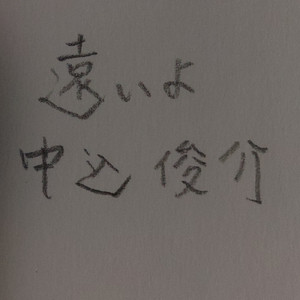 遠いよ
申込 俊介